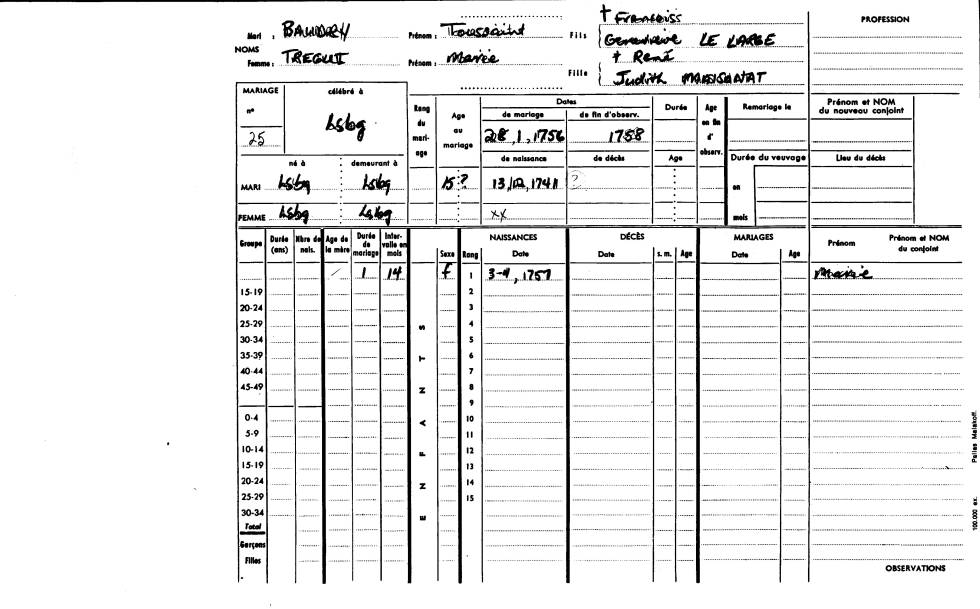 † François
Mari : BAUDRY Prénom : Toussaint Fils Geneviève LE LARGE PROFESSION
NOMS † René
Femme : TREGUI Prénom : Marie Fille Judith
MARIAGE célébré à Rang du mariage Age au mariage Dates Durée Age en fin d' observ. Remariage le Prénom et NOM du nouveau conjoint
n° de mariage de fin d'observ.
25 Lsbg 28, 1, 1756 1758
né à demeurant à de naissance de décès Age Durée du veuvage Lieu du décès
MARI Lsbg Lsbg 15 ? 13, 1741 ? en
FEMME Lsbg Lsbg xx mois
Groupe Durée (ans) Nbre de nais. Age de la mère Durée de mariage Inter-valle en mois Sexe Rang NAISSANCES Date DÉCÈS Date s. m. Age MARIAGES Date Age Prénom Prénom et NOM du conjoint
1 14 f 1 3-4, 1757 Marie
15-19 2
20-24 3
25-29 4
30-34 5
35-39 6
40-44 7
45-49 8
9
0-4 10
5-9 11
10-14 12
15-19 13
20-24 14
25-29 15
30-34
Total
Garçons
Filles
ENFANTS
OBSERVATIONS
100.000 ex. Pallas Malakoff.